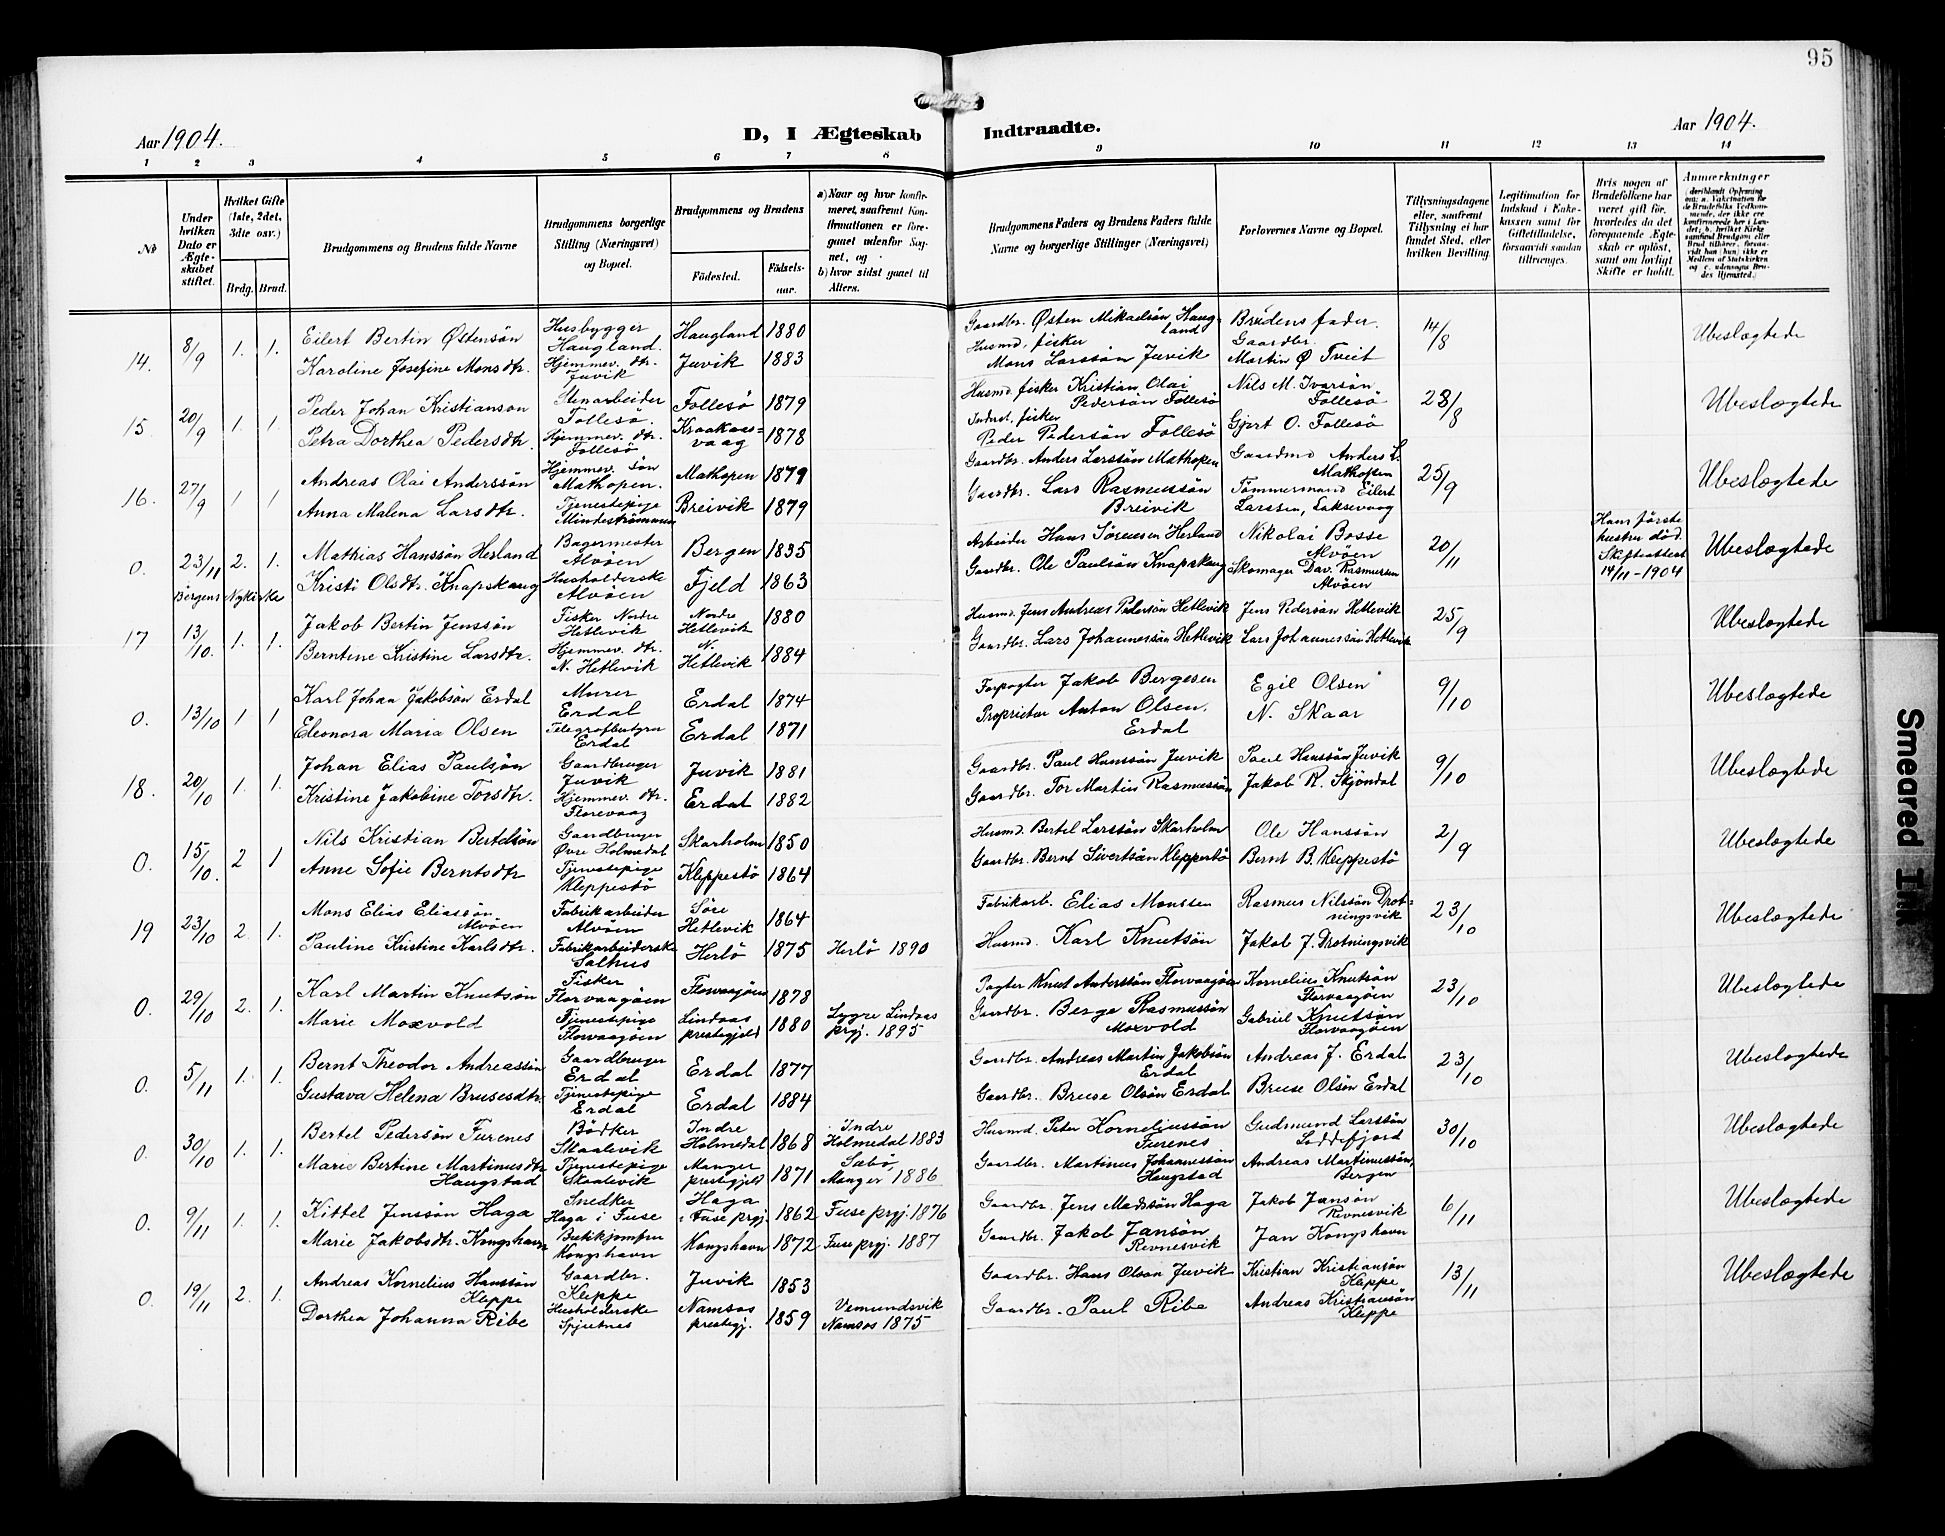 95
Aar 1904.
D, I Ægteskab Indtraadte.
Aar 1904.
1 2 3 4 5 6 7 8 9 10 11 12 13 14
No
Under hvilken Dato er Ægteskabet stiftet.
Hvilket Gifte (1ste, 2det, 3dte osv.)
Brdg. Brud.
Brudgommens og Brudens fulde Navne
Brudgommens borgerlige Stilling (Næringsvei) og Bopæl.
Brudgommens og Brudens
Födested.
Födselsaar.
a) Naar og hvor konfirmeret, saafremt Konfirmationen er foregaaet udenfor Sognet, og
b) hvor sidst gaaet til Alters.
Brudgommens Faders og Brudens Faders fulde Navne og borgerlige Stillinger (Næringsvei)
Forlovernes Navne og Bopæl.
Tillysningsdagene eller, saafremt Tillysning ei har fundet Sted, efter hvilken Bevilling.
Legitimation for Indskud i Enkekassen samt for Giftetilladelse, forsaavidt saadan tiltrænges.
Hvis nogen af Brudefolkene har været gift för, hvorledes da det foregaaende Ægteskab er oplöst, samt om lovligt Skifte er holdt.
Anmærkninger
14. 8/9 1. 1. Eilert Bertin Östensön Husbygger Haugland. Haugland 1880 Gaardbr. Östen Mikaelsön Haugland Brudens fader. 14/8 Ubeslægtede
Karoline Josefine Monsdtr. Hjemmev. dtr. Juvik Juvik 1883 Husmd. fisker Mons Larssön Juvik Gaardbr. Martin Ø Tveit
15. 20/9 1. 1. Peder Johan Kristianson Stenarbeider Follesö. Follesö 1879 Husmd. fisker Kristian Olai Pedersön Follesö Nils M. Ivarsön Follesö 28/8 Ubeslægtede
Petra Dorthea Pedersdtr. Hjemmev. dtr. Follesö Kraakaasvaag 1878 Inderst. fisker Peder Pedersön Follesö Gjert O. Follesö
16. 27/9 1 1 Andreas Olai Anderssön Hjemmev. sön Mathopen. Mathopen 1879 Gaardbr. Anders Larssön Mathopen Gaardmd Anders L. Mathopen 25/9 Ubeslægtede
Anna Malena Larsdtr. Tjenestepige Mindeströmmen Breivik 1879 Gaardbr. Lars Rasmussön Breivik Tömmermand Eilert Larssen, Laksevaag
0. 23/11 2. 1. Mathias Hanssön Herland Bagermester Alvöen Bergen 1835 Arbeider Hans Sörensen Herland Nikolai Bosse Alvöen 20/11 Hans förste hustru död. Skifteattest 14/11-1904 Ubeslægtede
Bergens Nykirke Kristi Olsdtr. Knapskaug Husholderske Alvöen Fjeld 1863 Gaardbr. Ole Paulsön Knapskaug Skomager Dav. Rasmussen Alvöen
17 13/10. 1. 1. Jakob Bertin Jenssön Fisker Nordre Hetlevik Nordre Hetlevik 1880 Husmd. Jens Andreas Pedersön Hetlevik Jens Pedersön Hetlevik 25/9 Ubeslægtede
Berntine Kristine Larsdtr. Hjemmev. dtr. N. Hetlevik N. Hetlevik 1884 Gaardbr. Lars Johannessön Hetlevik Lars Johannessön Hetlevik
0. 13/10 1 1 Karl Johan Jakobsön Erdal Murer Erdal Erdal 1874 Forpagter Jakob Bergesen Egil Olsen 9/10 Ubeslægtede
Eleonora Maria Olsen Telegrafbestyrer Erdal Erdal 1871 Proprietær Anton Olsen. Erdal N. Skaar
18. 20/10 1. 1. Johan Elias Paulsön Gaardbruger Juvik Juvik 1881 Gaardbr. Paul Hanssön Juvik Paul Hanssön Juvik 9/10 Ubeslægtede
Kristine Jakobine Torsdtr. Hjemmev. dtr. Florevaag Erdal 1882 Gaardbr. Tor Martin Rasmussön Jakob R. Skjöndal
0. 15/10. 2 1 Nils Kristian Bertelsön Gaardbruger Øvre Holmedal Skarholm 1850 Husmd. Bertel Larssön Skarholm Ole Hanssön 2/9 Ubeslægtede
Anne Sofie Berntsdtr Tjenestepige Kleppestö Kleppestö 1864 Gaardbr. Bernt Sivertsön Kleppestö Bernt B. Kleppestö
19 23/10 2. 1. Mons Elias Eliassön Alvöen Fabrikarbeider Alvöen Söre Hetlevik 1864 Fabrikarb. Elias Monssen Rasmus Nilssön Drotningsvik 23/10 Ubeslægtede
Pauline Kristine Karlsdtr. Fabrikarbeiderske Salhus Herlö 1875 Herlö 1890 Husmd. Karl Knutsön Jakob J. Drotningsvik
0. 29/10 2. 1. Karl Martin Knutsön Fisker Florvaagöen Florvaagöen 1878 Pagter Knut Anderssön Florvaagöen Kornelius Knutsön Florvaagöen 23/10 Ubeslægtede
Marie Moxvold Tjenestepige Florvaagöen Lindaas prestegjeld 1880 Lygre Lindaas prgj. 1895 Gaardbr. Berge Rasmussön Moxvold Gabriel Knutsön Florvaagöen
0. 5/11 1. 1. Bernt Theodor Andreassön Gaardbruger Erdal Erdal 1877 Gaardbr. Andreas Martin Jakobsön Erdal Andreas J. Erdal 23/10 Ubeslægtede
Gustava Helena Brusesdtr. Tjenestepige Erdal Erdal 1884 Gaardbr. Bruse Olsön Erdal Bruse Olsön Erdal
0. 30/10 1. 1. Bertel Pedersön Furenes Bödker Skaalevik Indre Holmedal 1868 Indre Holmedal 1883 Husmd. Peter Korneliussön Furenes Gudmund Larssön Loddefjord 30/10 Ubeslægtede
Marie Bertine Martinusdtr Haugstad Tjenestepige Skaalevik Manger prestegjeld 1871 Sæbö, Manger 1886 Gaardbr. Martinus Johannessön Haugstad Andreas Martinussön, Bergen
0. 9/11 1. 1. Kittel Jenssön Haga Snedker Haga i Fuse Haga i Fuse prgj. 1862 Fuse prgj. 1876 Gaardbr. Jens Madssön Haga Jakob Jansön Revnesvik 6/11 Ubeslægtede
Marie Jakobsdtr. Kongshavn Butikjomfru Kongshavn Kongshavn 1872 Fuse prgj. 1887 Gaardbr. Jakob Jansön Revnesvik Jan Kongshavn
0. 19/11 2. 1. Andreas Kornelius Hanssön Kleppe Gaardbr. Kleppe Juvik 1853 Gaardbr. Hans Olson Juvik Kristian Kristiansön Kleppe 13/11 Ubeslægtede
Dorthea Johanna Ribe Husholderske Spjutnes Namsos prestegj. 1859 Vemundsvik Namsos 1875 Gaardbr. Paul Ribe Andreas Kristiansön Kleppe
Smeared Ink